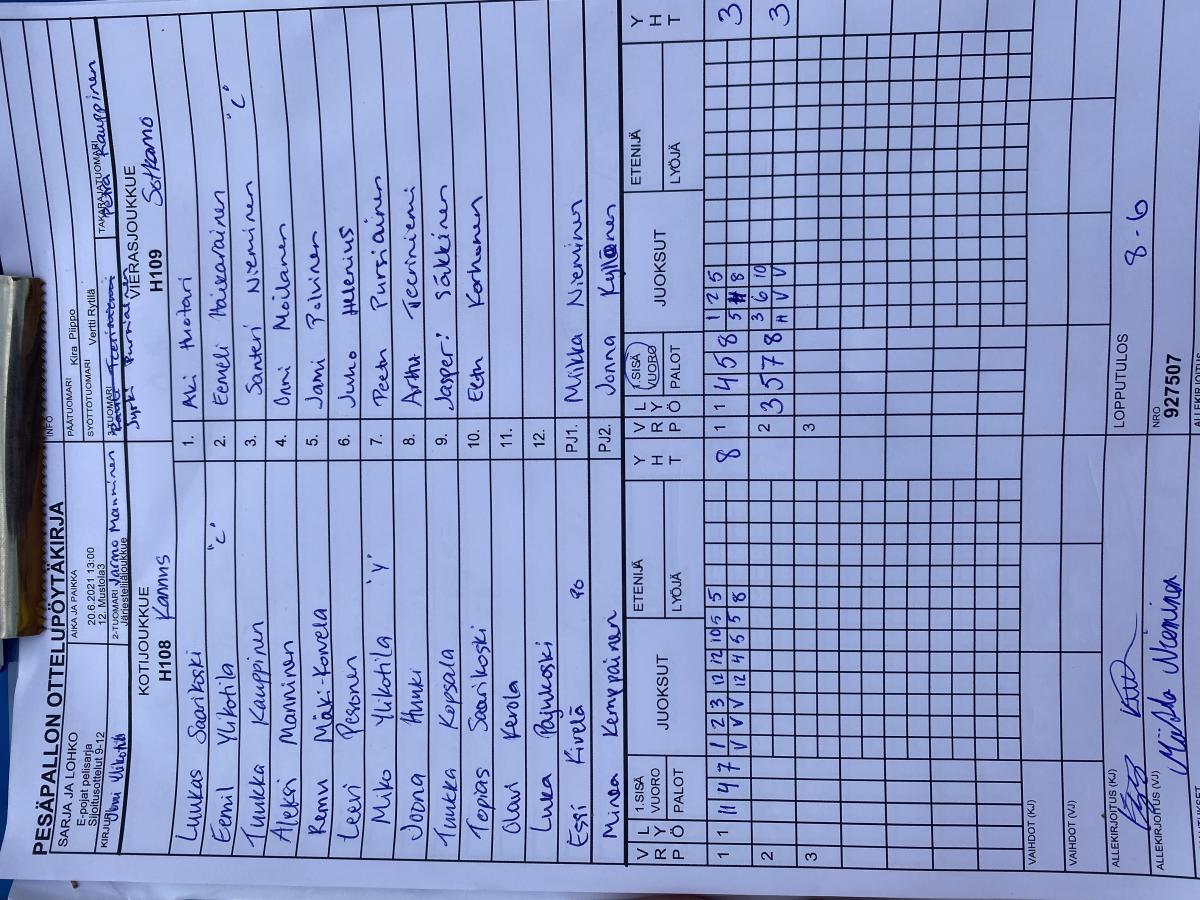 PESÄPALLON OTTELUPÖYTÄKIRJA
SARJA JA LOHKO
E-pojat pelisarja
Sijoitusottelut 9-12
AIKA JA PAIKKA
20.6.2021 13:00
12. Mustola3
INFO
PÄÄTUOMARI Kira Piippo
SYÖTTÖTUOMARI Vertti Rytilä
KIRJURI
2-TUOMARI Jarmo Manninen
Järjestelijäjoukkue
3-TUOMARI
TAKARAJATUOMARI
Petra Kauppinen
KOTIJOUKKUE
H108 Kannus
VIERASJOUKKUE
H109 Sotkamo
Luukas Saarikoski 1. Aki Huotari
Eemil Ylikotila "C" 2. Eemeli Haikarainen
Tuukka Kauppinen 3. Santeri Nieminen "C"
Aleksi Manninen 4. Onni Moilanen
Remu Mäki-Korvela 5. Jami Polvinen
Leevi Pesonen 6. Juho Helenius
Miko Ylikotila 'V' 7. Peetu Pursiainen
Joona Hunki 8. Arttu Teeriniemi
Tuukka Kopsala 9. Jasperi Säkkinen
Topias Saarikoski 10. Eetu Korhonen
Olavi Kerola 11.
Luka Pajukoski 12.
Essi Kivelä PJ1. Miikka Nieminen
Minea Kemppainen PJ2. Jonna Kyllönen
V R P L Y Ö 1.SISÄ VUORO PALOT JUOKSUT ETENIJÄ LYÖJÄ Y H T V R P L Y Ö 1.SISÄ VUORO PALOT JUOKSUT ETENIJÄ LYÖJÄ Y H T
1 1 11 4 7 1 2 3 12 12 10 5 5 8 1 1 4 5 8 1 2 5 3
V V V 12 4 5 5 8 5 H 8
2 2 3 5 7 8 3 6 10 3
H V V
3 3
VAIHDOT (KJ)
VAIHDOT (VJ)
ALLEKIRJOITUS (KJ)
LOPPUTULOS 8-6
ALLEKIRJOITUS (VJ) Miikka Nieminen
NRO
927507